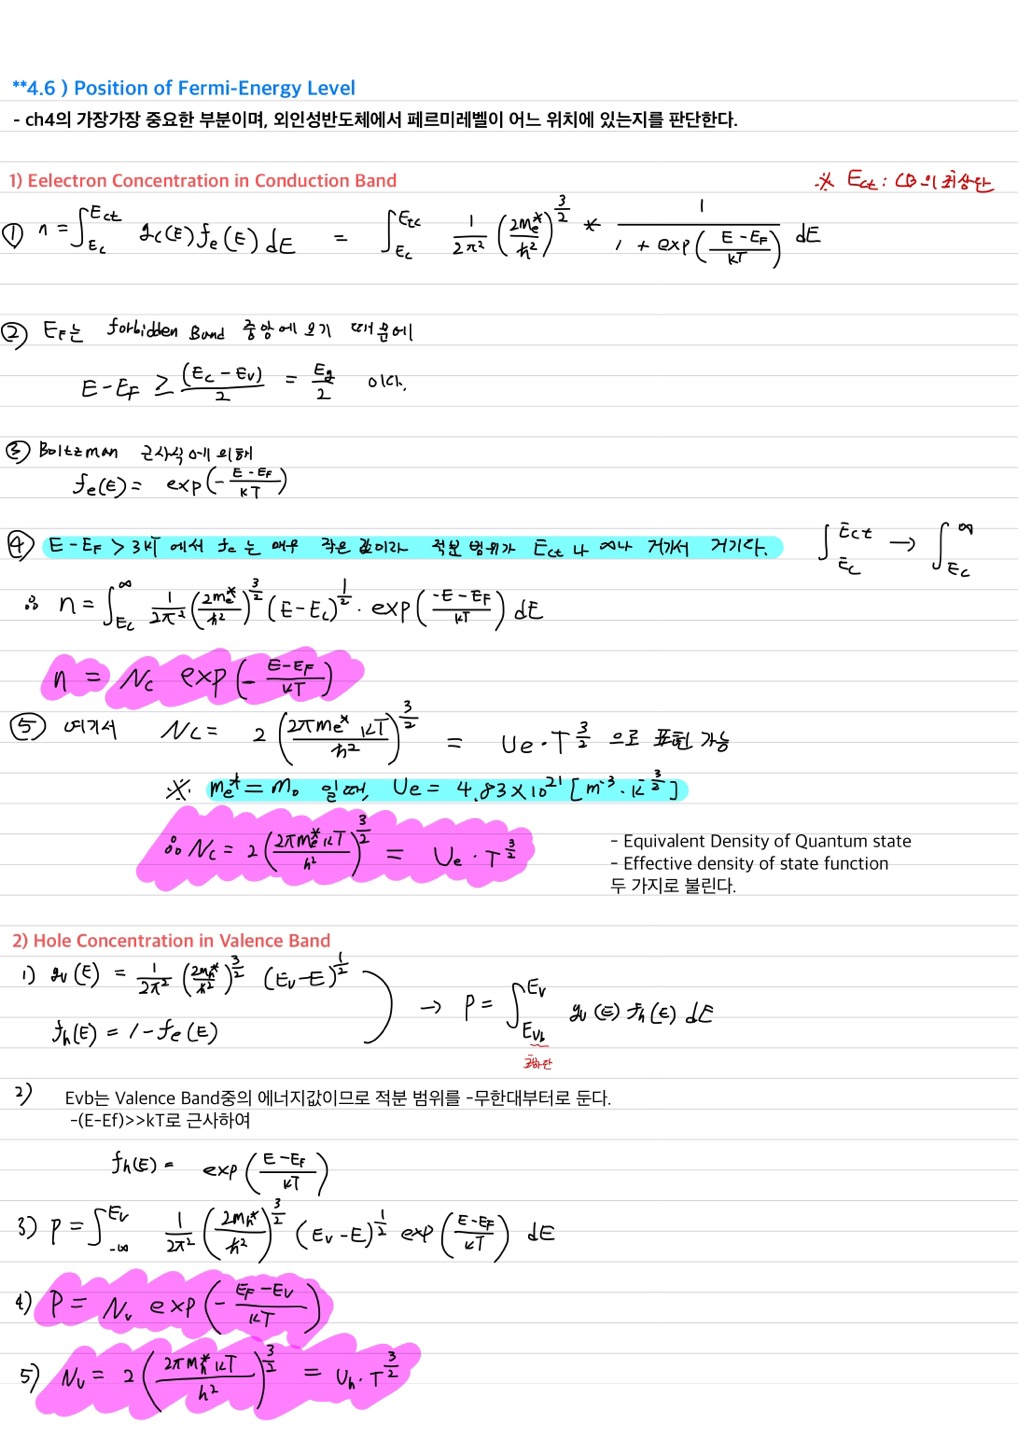 **4.6 ) Position of Fermi-Energy Level
- ch4의 가장가장 중요한 부분이며, 외인성반도체에서 페르미레벨이 어느 위치에 있는지를 판단한다.
1) Eelectron Concentration in Conduction Band
※ Ect : CB의 최상단
① n = ∫_{Ec}^{Ect} gc(E) fe(E) dE = ∫_{Ec}^{Etc} 1/2π² (2me*/ħ²)^{3/2} * 1/(1 + exp((E - EF)/kT)) dE
② EF는 forbidden Band 중앙에 오기 때문에
E - EF ≥ (Ec - Ev)/2 = Eg/2 이다.
③ Boltzman 근사식에 의해
fe(E) = exp(- (E - EF)/kT)
④ E - EF > 3kT 에서 fe 는 매우 작은 값이라 적분 범위가 Ect 나 ∞나 거기서 거기다. ∫_{Ec}^{Ect} → ∫_{Ec}^{∞}
∴ n = ∫_{Ec}^{∞} 1/2π² (2me*/ħ²)^{3/2} (E - Ec)^{1/2} · exp((-E - EF)/kT) dE
n = Nc exp(- (E - EF)/kT)
⑤ 여기서 Nc = 2 (2πme* kT/h²)^{3/2} = Ue · T^{3/2} 으로 표현 가능
※. me* = m₀ 일때, Ue = 4.83 × 10²¹ [m⁻³ · k^{-3/2}]
∴ Nc = 2 (2πme* kT/h²)^{3/2} = Ue · T^{3/2}
- Equivalent Density of Quantum state
- Effective density of state function
두 가지로 불린다.
2) Hole Concentration in Valence Band
1) gv(E) = 1/2π² (2mh*/ħ²)^{3/2} (Ev - E)^{1/2}
fh(E) = 1 - fe(E)
→ P = ∫_{Evb}^{Ev} gv(E) fh(E) dE
최하단
2) Evb는 Valence Band중의 에너지값이므로 적분 범위를 -무한대부터로 둔다.
-(E-Ef)>>kT로 근사하여
fh(E) = exp((E - EF)/kT)
3) P = ∫_{-∞}^{Ev} 1/2π² (2mh*/ħ²)^{3/2} (Ev - E)^{1/2} exp((E - EF)/kT) dE
4) P = Nv exp(- (EF - Ev)/kT)
5) Nv = 2 (2πmh* kT/h²)^{3/2} = Uh · T^{3/2}